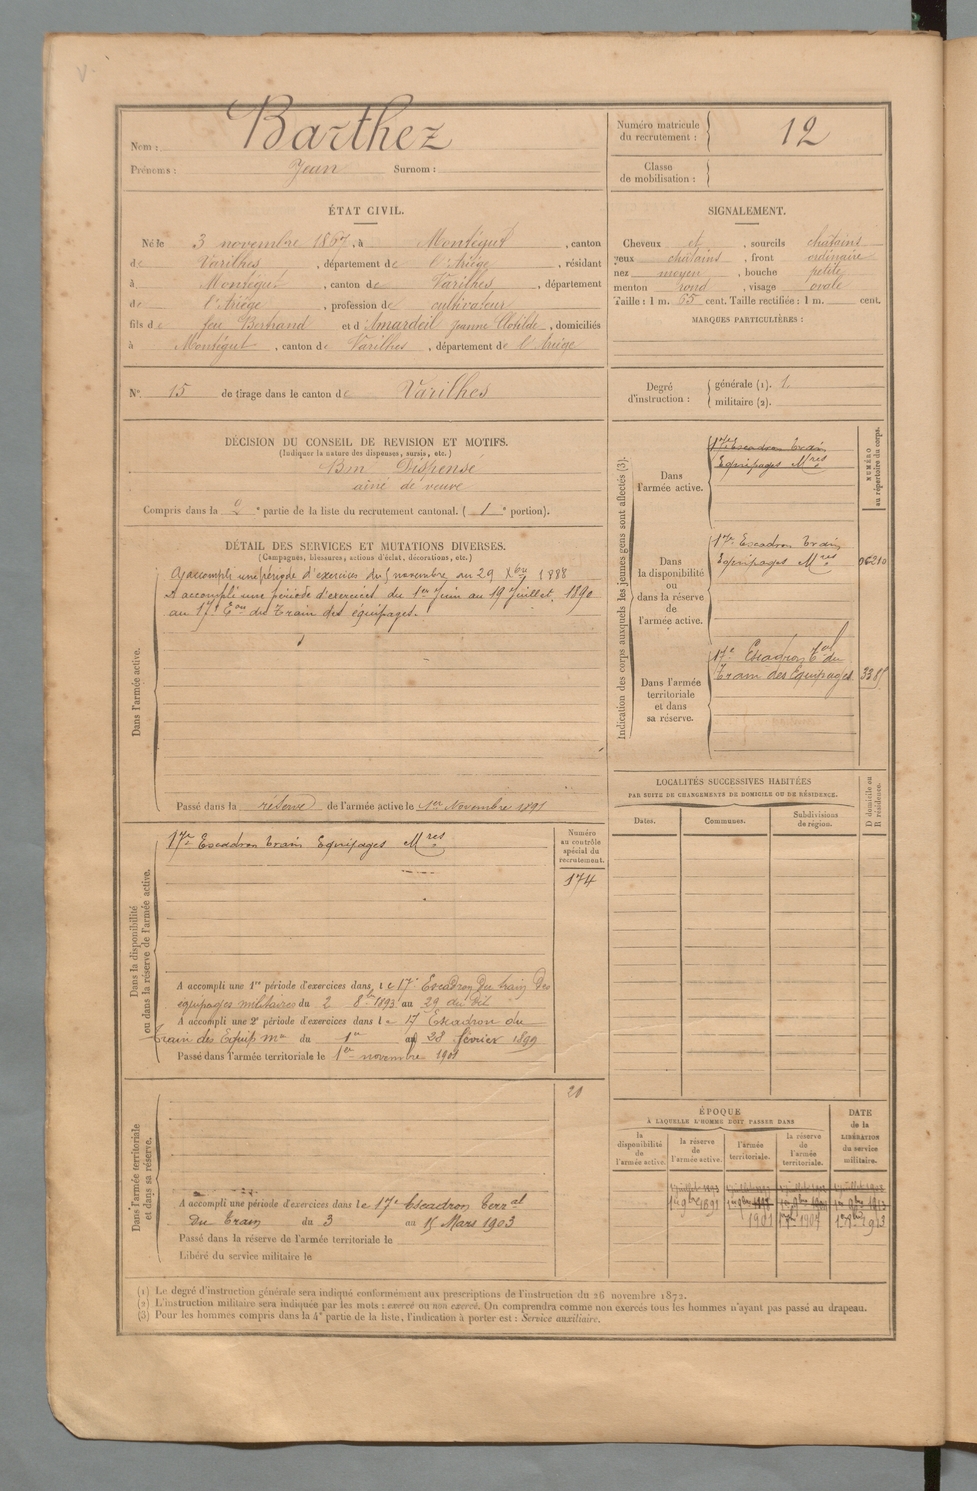 Nom : Barthez
Prénoms : Jean Surnom :
Numéro matricule du recrutement : 12
Classe de mobilisation :
ÉTAT CIVIL.
Né le 3 novembre 1867, à Montégut, canton
de Varilhes, département de l'Ariège, résidant
à Montégut, canton de Varilhes, département
de l'Ariège, profession de cultivateur
fils de feu Bertrand et d'Amardeil Jeanne Clotilde, domiciliés
à Montégut, canton de Varilhes, département de l'Ariège
SIGNALEMENT.
Cheveux et, sourcils châtains
yeux châtains, front ordinaire
nez moyen, bouche petite
menton rond, visage ovale
Taille : 1 m. 65 cent. Taille rectifiée : 1 m. cent.
MARQUES PARTICULIÈRES :
N° 15 de tirage dans le canton de Varilhes
Degré d'instruction :
générale (1). 1.
militaire (2).
DÉCISION DU CONSEIL DE REVISION ET MOTIFS.
(Indiquer la nature des dispenses, sursis, etc.)
Bon Dispensé
aîné de veuve
Compris dans la 2e partie de la liste du recrutement cantonal. (1e portion).
DÉTAIL DES SERVICES ET MUTATIONS DIVERSES.
(Campagnes, blessures, actions d'éclat, décorations, etc.)
Dans l'armée active.
A accompli une période d'exercices du 5 novembre au 29 Xbre 1888
A accompli une période d'exercices du 1er Juin au 19 Juillet 1890
au 17e Eon du Train des équipages.
Passé dans la réserve de l'armée active le 1er Novembre 1891
Dans la disponibilité ou dans la réserve de l'armée active.
17e Escadron train Equipages Mres
Numéro au contrôle spécial du recrutement.
174
A accompli une 1re période d'exercices dans le 17e Escadron du train des
équipages militaires du 2 8bre 1893 au 29 du dit
A accompli une 2e période d'exercices dans le 17 Escadron du
train des Equip mres du 1er au 28 février 1899
Passé dans l'armée territoriale le 1er novembre 1901
Dans l'armée territoriale et dans sa réserve.
20
A accompli une période d'exercices dans le 17e Escadron Terral
du Train du 3 au 15 Mars 1903
Passé dans la réserve de l'armée territoriale le
Libéré du service militaire le
Indication des corps auxquels les jeunes gens sont affectés (3).
NUMÉRO au répertoire du corps.
Dans l'armée active.
17e Escadron train
Equipages Mres
Dans la disponibilité ou dans la réserve de l'armée active.
17e Escadron train
Equipages Mres
Dans l'armée territoriale et dans sa réserve.
17e Escadron Tal du
Train des Equipages
LOCALITÉS SUCCESSIVES HABITÉES
PAR SUITE DE CHANGEMENTS DE DOMICILE OU DE RÉSIDENCE.
Dates. Communes. Subdivisions de région. D domicile ou R résidence.
ÉPOQUE
À LAQUELLE L'HOMME DOIT PASSER DANS
la disponibilité de l'armée active.
la réserve de l'armée active.
l'armée territoriale.
la réserve de l'armée territoriale.
DATE de la LIBÉRATION du service militaire.
1er 9bre 1891
1901
(1) Le degré d'instruction générale sera indiqué conformément aux prescriptions de l'instruction du 26 novembre 1872.
(2) L'instruction militaire sera indiquée par les mots : exercé ou non exercé. On comprendra comme non exercés tous les hommes n'ayant pas passé au drapeau.
(3) Pour les hommes compris dans la 4e partie de la liste, l'indication à porter est : Service auxiliaire.